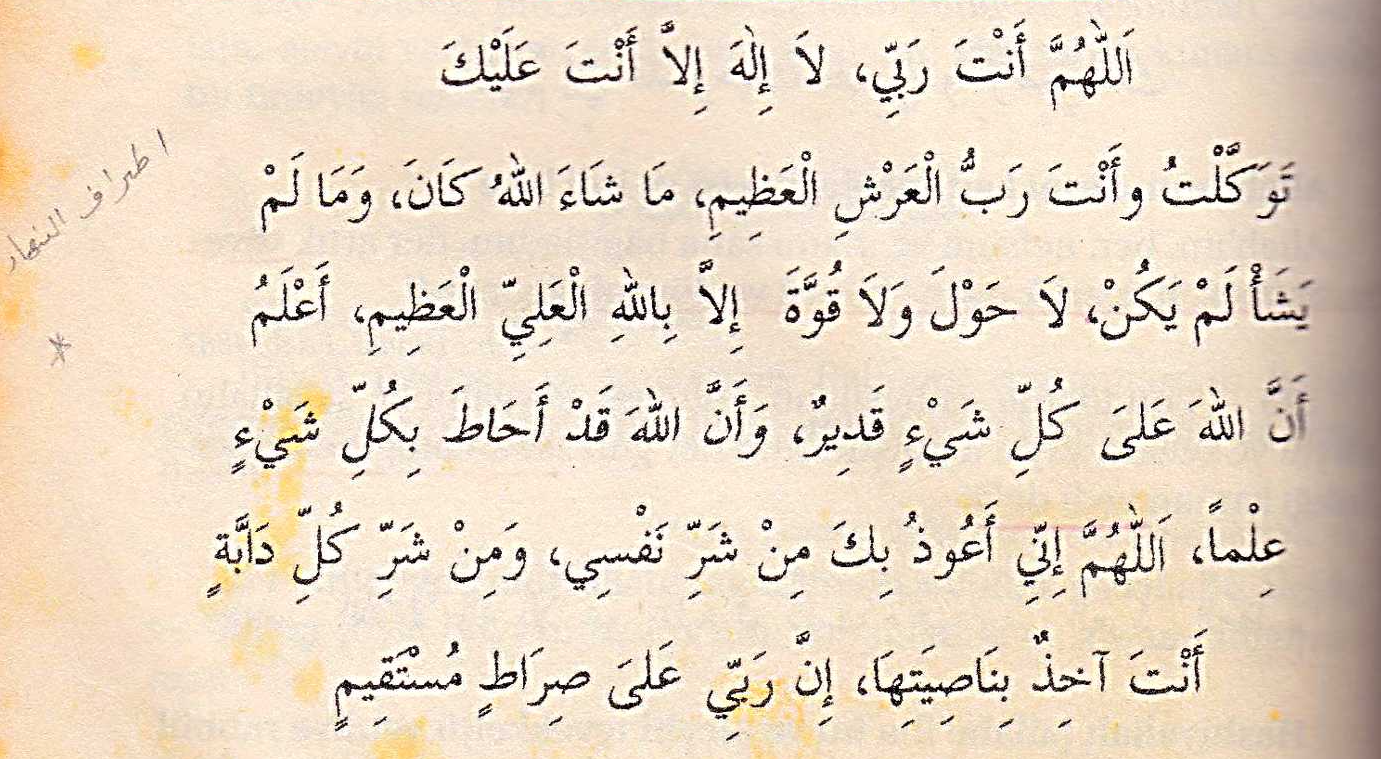 اَللّٰهُمَّ أَنْتَ رَبِّي، لاَ إِلٰهَ إِلاَّ أَنْتَ عَلَيْكَ
تَوَكَّلْتُ وأَنْتَ رَبُّ الْعَرْشِ الْعَظِيمِ، مَا شَاءَ اللهُ كَانَ، وَمَا لَمْ
يَشَأْ لَمْ يَكُنْ، لاَ حَوْلَ وَلاَ قُوَّةَ إِلاَّ بِاللهِ الْعَلِيِّ الْعَظِيمِ، أَعْلَمُ
أَنَّ اللهَ عَلىَ كُلِّ شَيْءٍ قَدِيرٌ، وَأَنَّ اللهَ قَدْ أَحَاطَ بِكُلِّ شَيْءٍ
عِلْماً، اَللّٰهُمَّ إِنِّي أَعُوذُ بِكَ مِنْ شَرِّ نَفْسِي، وَمِنْ شَرِّ كُلِّ دَابَّةٍ
أَنْتَ آخِذٌ بِنَاصِيَتِهَا، إِنَّ رَبِّي عَلىَ صِرَاطٍ مُسْتَقِيمٍ
اطراف النهار
*